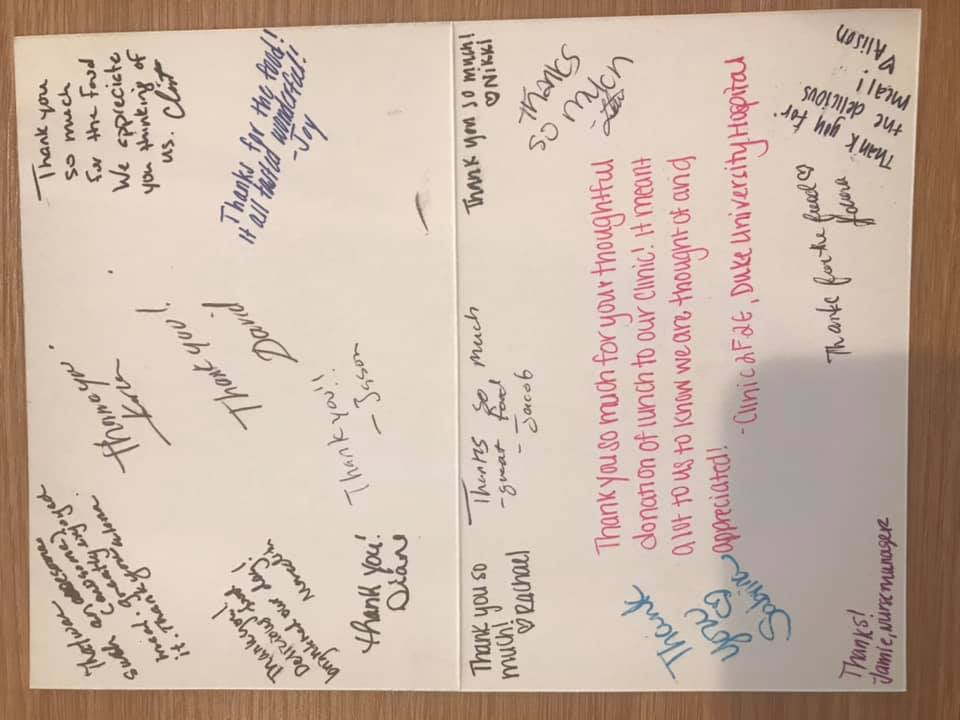 That was
such an awesome
meal. I greatly enjoyed
it. Thank you
Thank you
Karen
Thank you
so much
for the food
We appreciate
you thinking of
us. Clint
Thank you!
Delicious food
brightened our day!
Thank you!
David
Thanks for the food!
It all tasted wonderful!
-Joy
Thank you!
Diane
Thank you!!
-Jason
Thank you so
much!
♡Rachael
Thanks so much
-great food
-Jacob
Thank you so much!
♡Nikki
SO Thanks
much
Thank you so much for your thoughtful
donation of lunch to our clinic! It meant
a lot to us to know we are thought of and
appreciated!
-Clinic 2F2E, Duke University Hospital
Thank
you
Sabrina
Thanks for the food♡
Laura
Thank you for
the delicious
meal!
♡Alison
Thanks!
Jamie, nurse manager